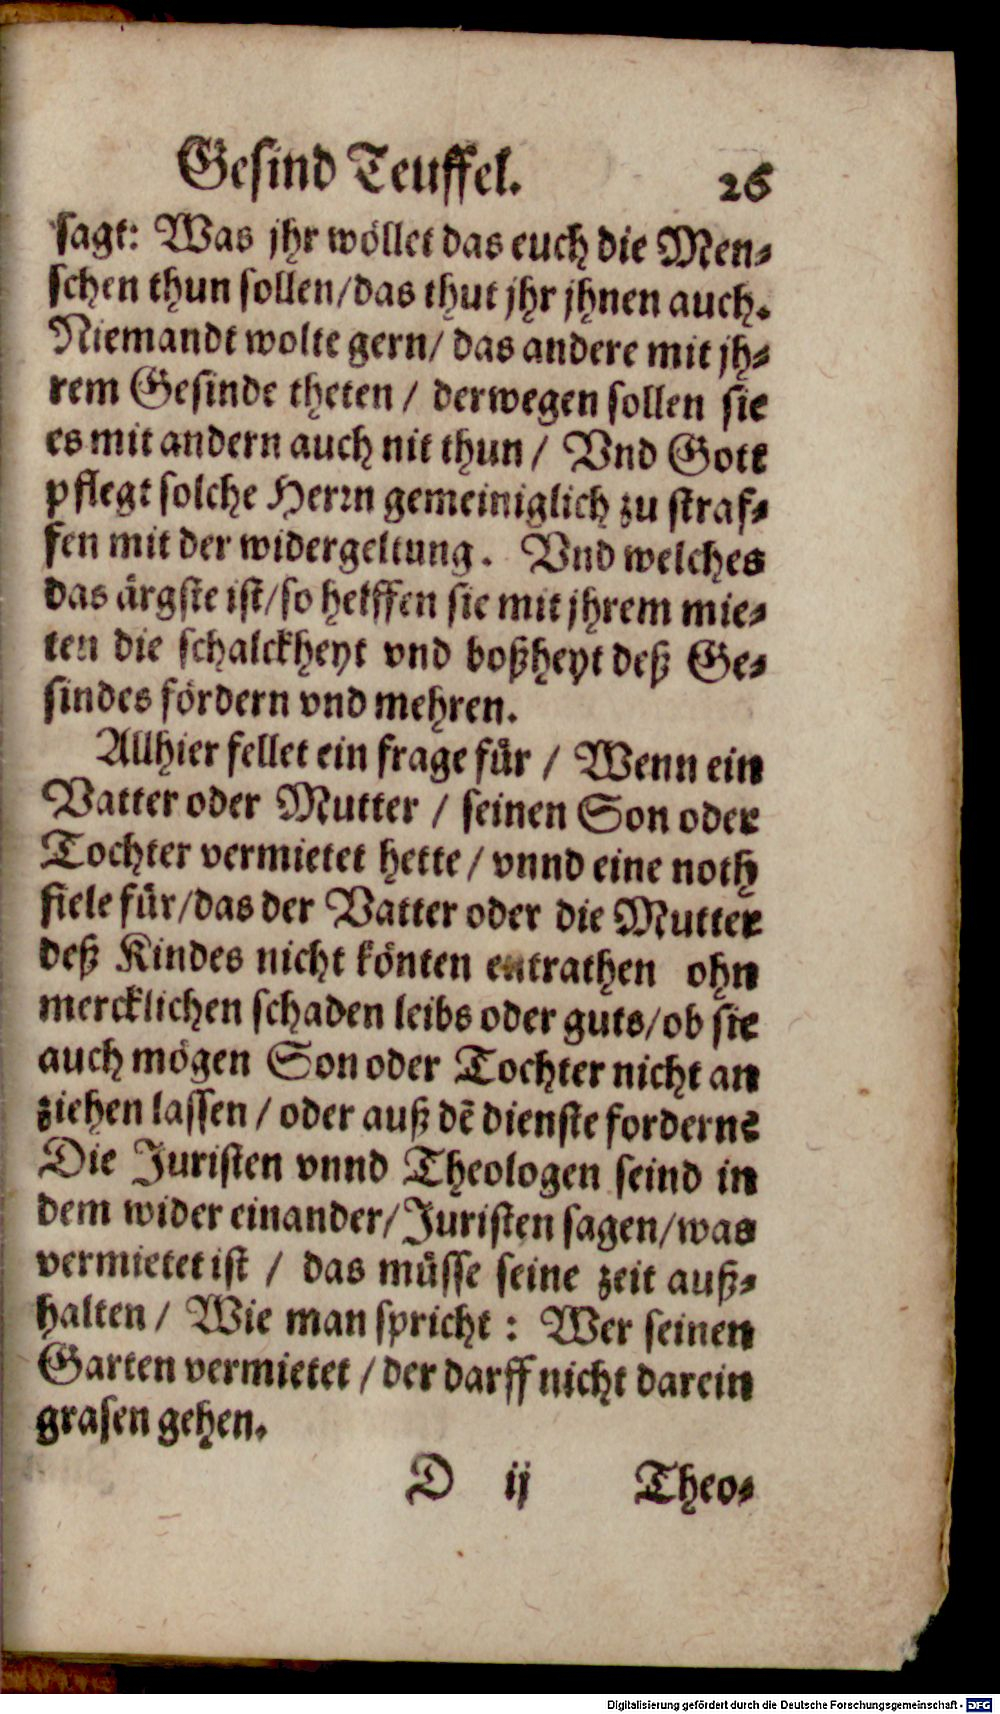 Gesind Teuffel. 26
sagt: Was jhr wöllet das euch die Men-
schen thun sollen/das thut jhr jhnen auch.
Niemandt wolte gern/ das andere mit jh-
rem Gesinde theten / derwegen sollen sie
es mit andern auch nit thun / Vnd Gott
pflegt solche Herrn gemeiniglich zu straf-
fen mit der widergeltung. Vnd welches
das ärgste ist/so helffen sie mit jhrem mie-
ten die schalckheyt vnd boßheyt deß Ge-
sindes fördern vnd mehren.
Allhier fellet ein frage für / Wenn ein
Vatter oder Mutter / seinen Son oder
Tochter vermietet hette / vnnd eine noth
fiele für/das der Vatter oder die Mutter
deß Kindes nicht könten entrathen ohn
mercklichen schaden leibs oder guts/ob sie
auch mögen Son oder Tochter nicht an
ziehen lassen / oder auß dẽ dienste fordern?
Die Juristen vnnd Theologen seind in
dem wider einander/Juristen sagen/was
vermietet ist / das müsse seine zeit auß-
halten / Wie man spricht : Wer seinen
Garten vermietet / der darff nicht darein
grasen gehen.
D ij Theo-
Digitalisierung gefördert durch die Deutsche Forschungsgemeinschaft - DFG